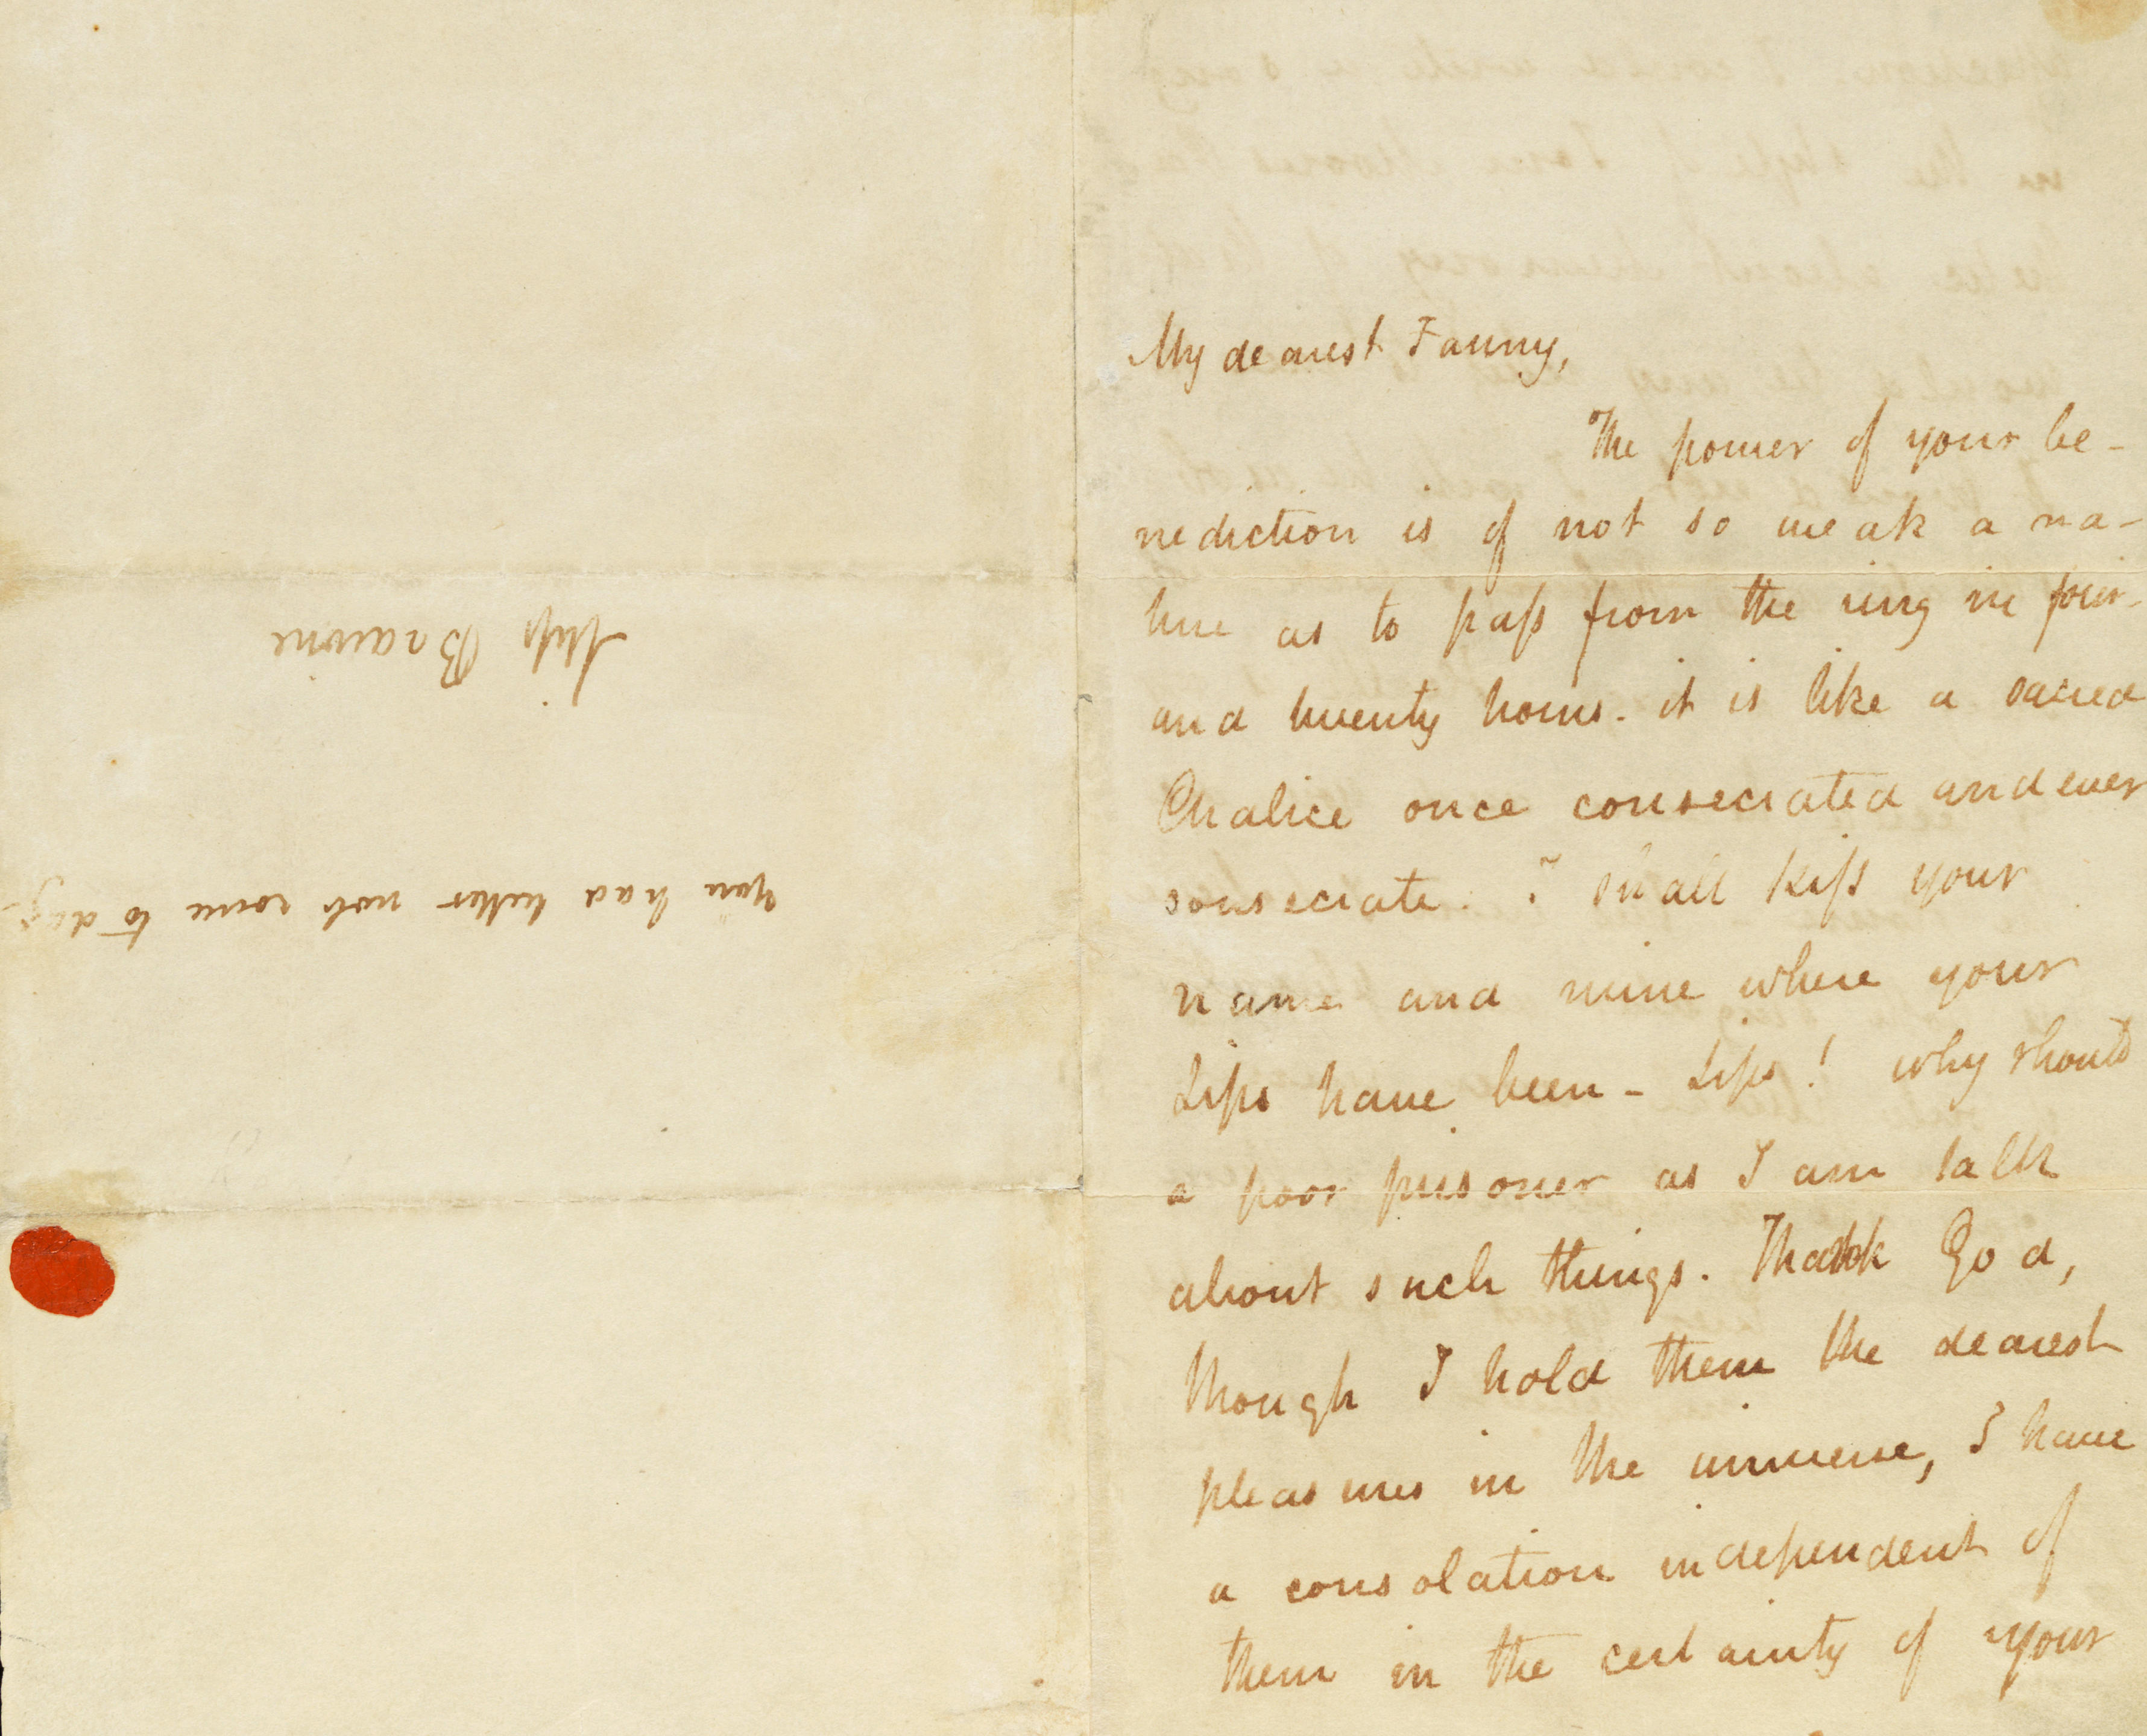 My dearest Fanny,
The power of your be-
nediction is of not so weak a na-
ture as to pass from the ring in four-
and twenty hours. it is like a sacred
Chalice once consecrated and ever
consecrate. I shall kiss your
name and mine where your
Lips have been - Lips! why should
a poor prisoner as I am talk
about such things. Thank God,
though I hold them the dearest
pleasures in the universe, I have
a consolation independent of
them in the certainty of your
Miss Brawne
You had better not come to day-